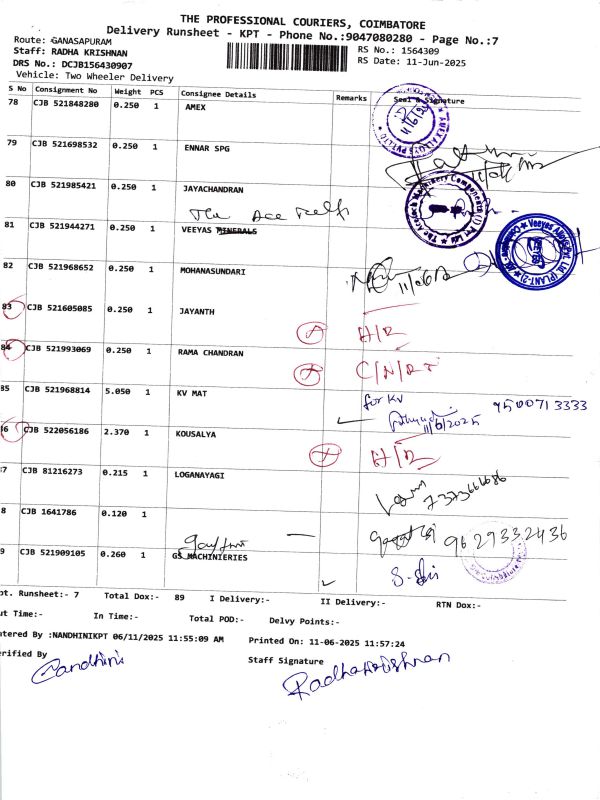 THE PROFESSIONAL COURIERS, COIMBATORE
Delivery Runsheet - KPT - Phone No.:9047080280 - Page No.:7
Route: GANASAPURAM
Staff: RADHA KRISHNAN
RS No.: 1564309
DRS No.: DCJB156430907
RS Date: 11-Jun-2025
Vehicle: Two Wheeler Delivery
S No Consignment No Weight PCS Consignee Details Remarks Seal & Signature
78 CJB 521848280 0.250 1 AMEX
79 CJB 521698532 0.250 1 ENNAR SPG
80 CJB 521985421 0.250 1 JAYACHANDRAN
The Ace
81 CJB 521944271 0.250 1 VEEYAS MINERALS
82 CJB 521968652 0.250 1 MOHANASUNDARI
83 CJB 521605085 0.250 1 JAYANTH
84 CJB 521993069 0.250 1 RAMA CHANDRAN
85 CJB 521968814 5.050 1 KV MAT for KV 9500713333
11/6/2025
86 CJB 522056186 2.370 1 KOUSALYA
87 CJB 81216273 0.215 1 LOGANAYAGI 7373666686
8 CJB 1641786 0.120 1 9629332436
9 CJB 521909105 0.260 1 GS MACHINIERIES
pt. Runsheet:- 7 Total Dox:- 89 I Delivery:- II Delivery:- RTN Dox:-
ut Time:- In Time:- Total POD:- Delvy Points:-
ntered By :NANDHINIKPT 06/11/2025 11:55:09 AM Printed On: 11-06-2025 11:57:24
erified By Staff Signature
Nandhini
Radhakrishnan